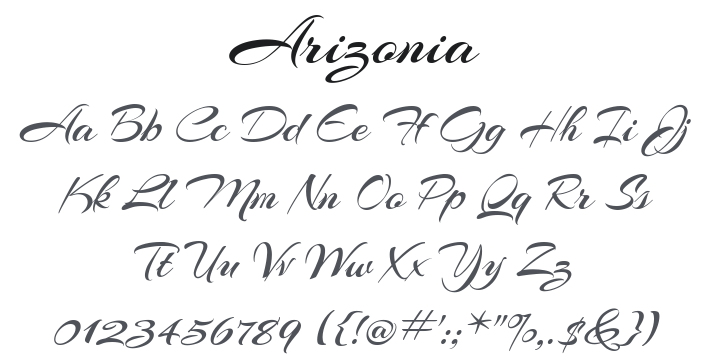 Arizonia
Aa Bb Cc Dd Ee Ff Gg Hh Ii Jj
Kk Ll Mm Nn Oo Pp Qq Rr Ss
Tt Uu Vv Ww Xx Yy Zz
0123456789 ({!@#':;*"%,.$&})